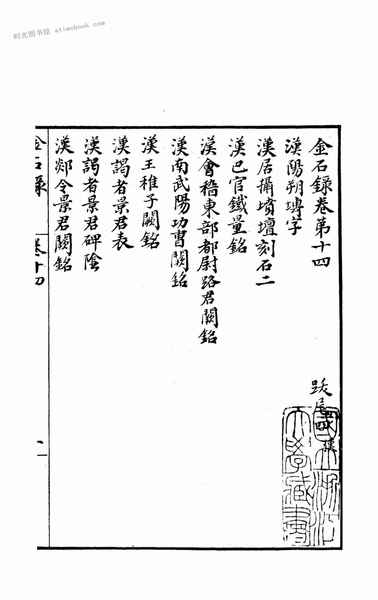 时光图书馆 mtimebook.com
金石錄卷第十四
跋尾四 漢
漢陽朔塼字
漢居攝墳壇刻石二
漢巴官鐵量銘
漢會稽東部都尉路君闕銘
漢南武陽功曹闕銘
漢王稚子闕銘
漢謁者景君表
漢謁者景君碑陰
漢郯令景君闕銘
金石錄 卷十四 一